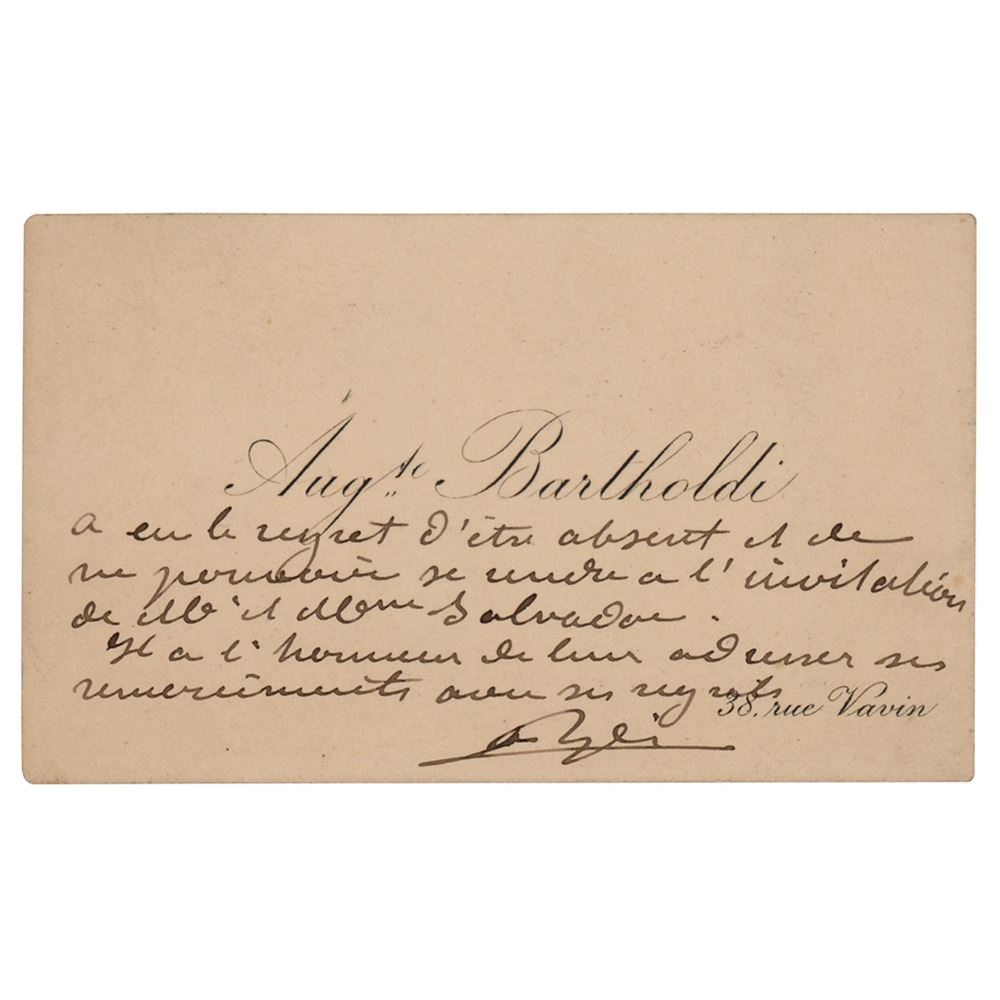 Aug.te Bartholdi
a eu le regret d'être absent et de
ne pouvoir se rendre a l'invitation
de Mr et Mme Salvador.
Il a l'honneur de leur adresser ses
remerciements avec ses regrets
38. rue Vavin